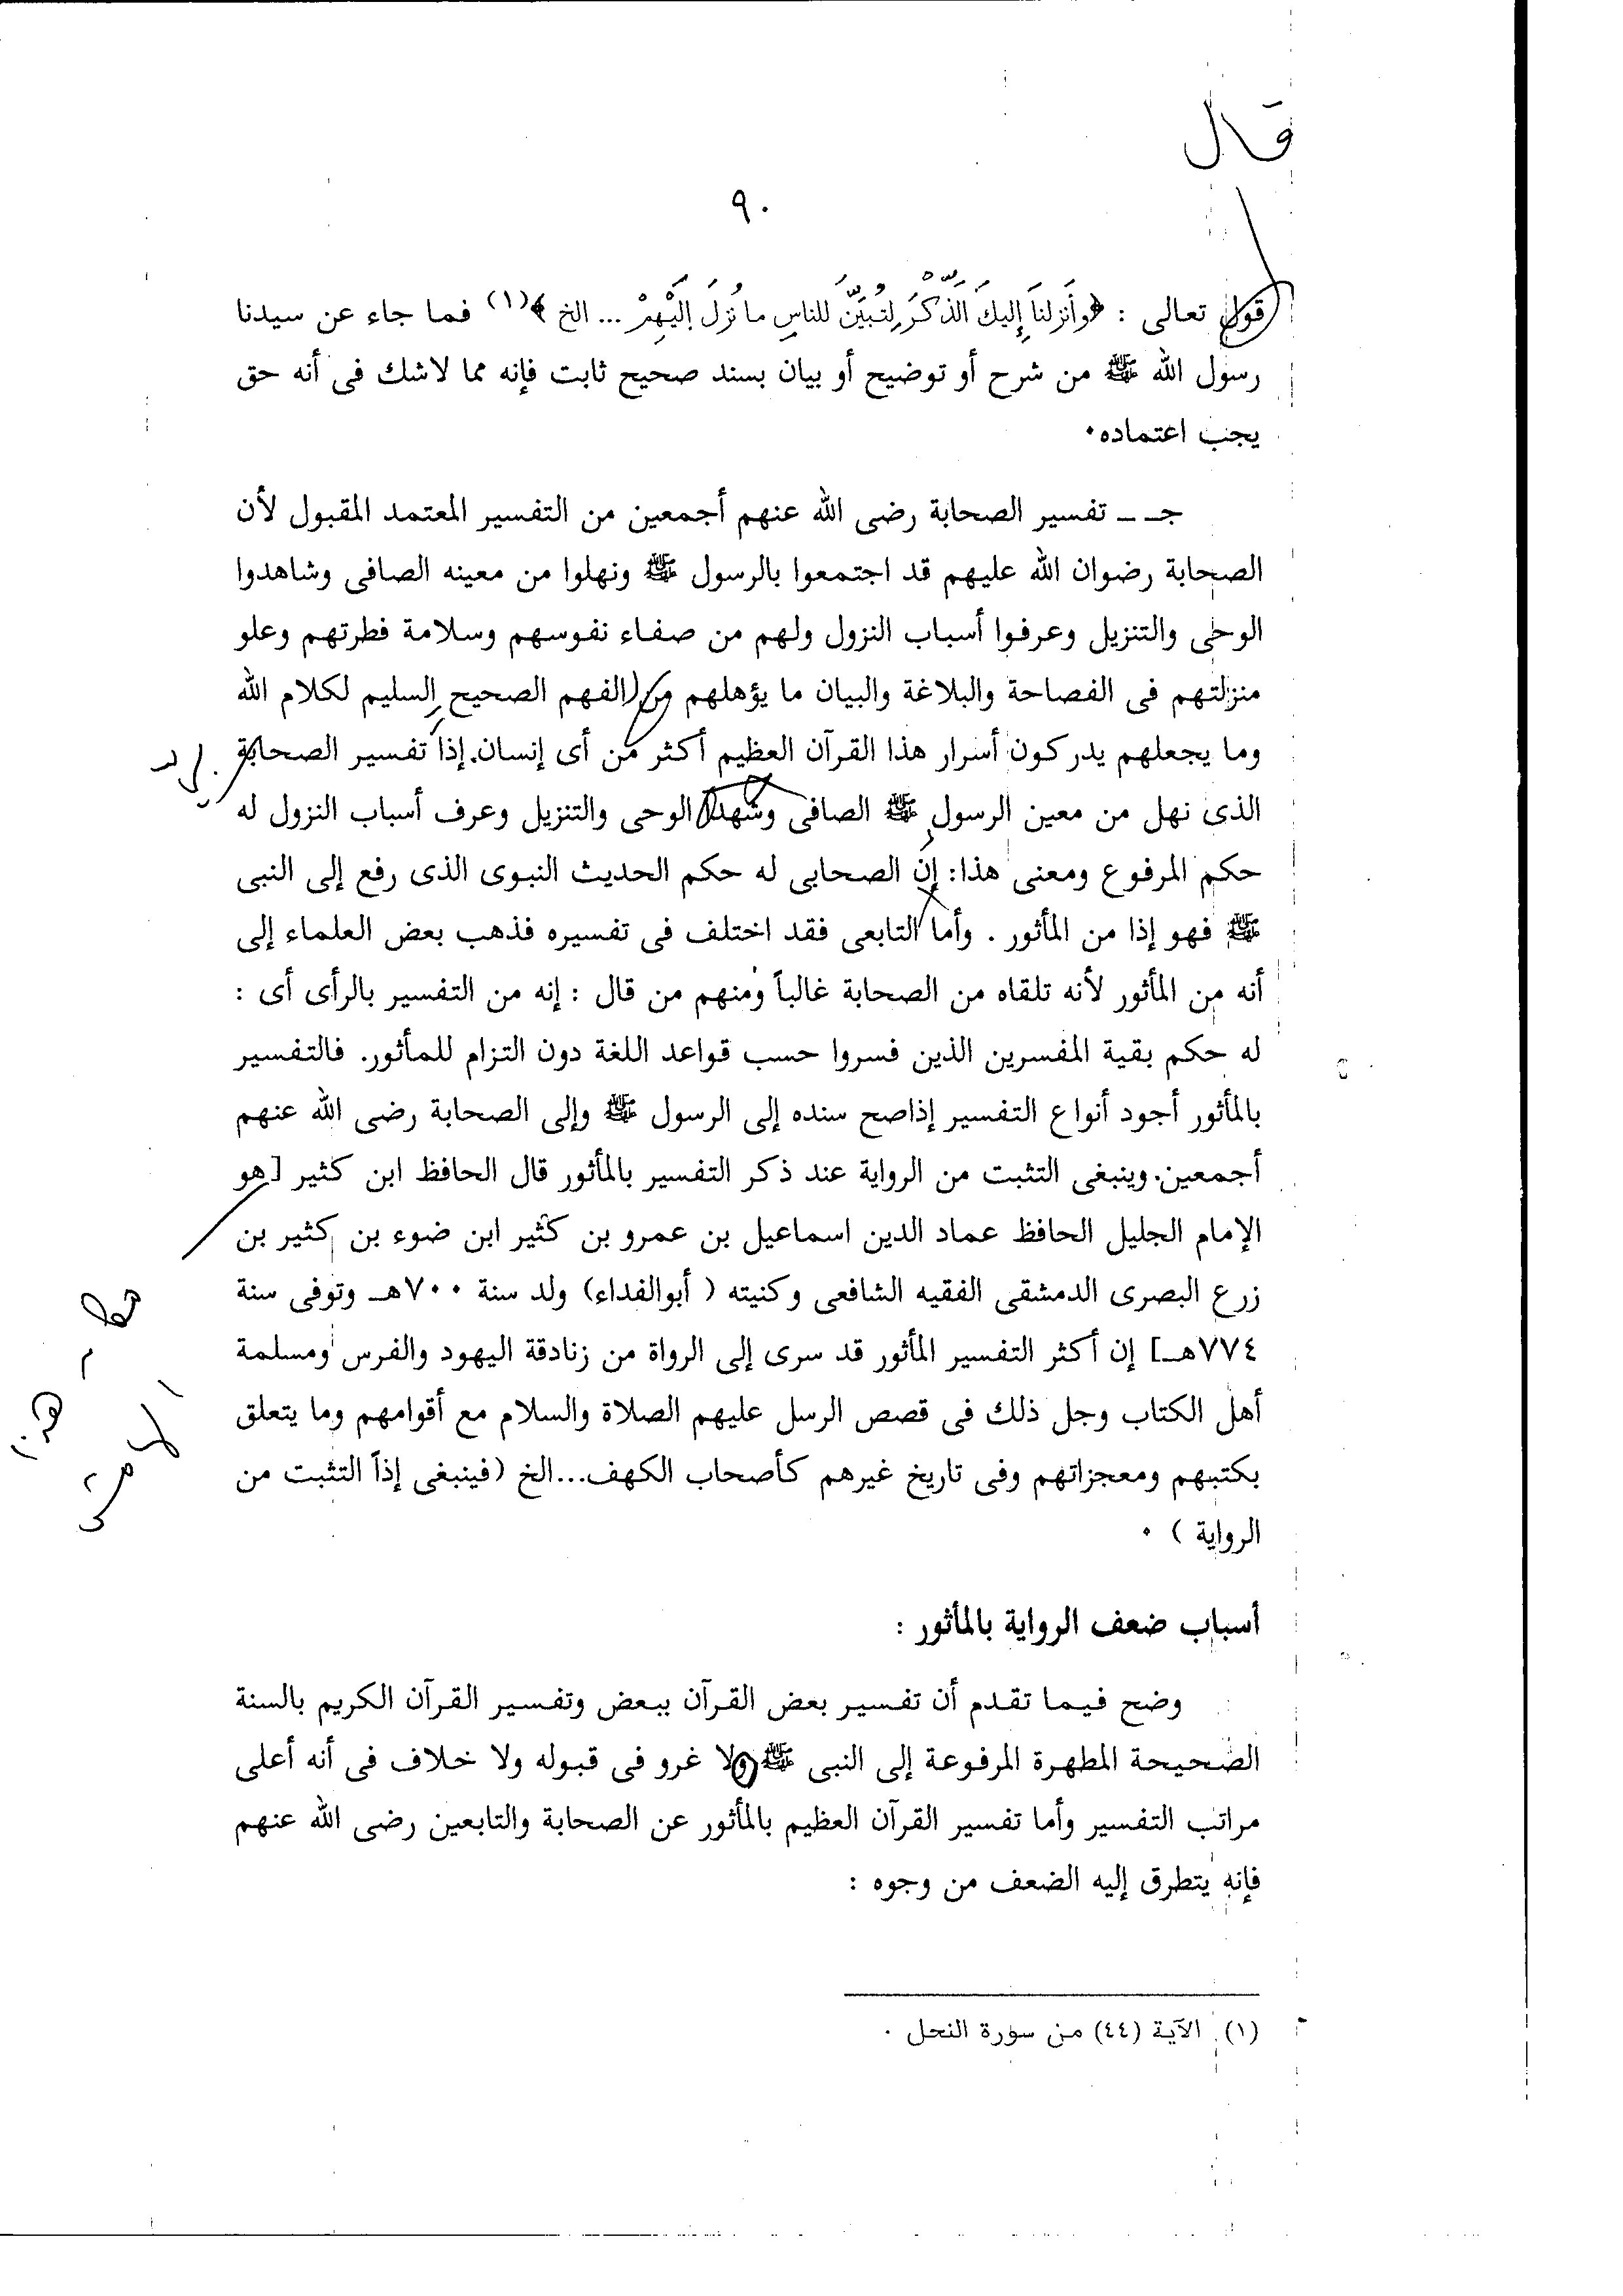 قال
٩٠
قول تعالى : ﴿وأَنزلنَا إِليكَ الذِّكْرَ لِتُبَيِّنَ للناسِ ما نُزلَ إليْهِمْ ... الخ ﴾(١) فما جاء عن سيدنا
رسول الله ﷺ من شرح أو توضيح أو بيان بسند صحيح ثابت فإنه مما لاشك فى أنه حق
يجب اعتماده٠
جـ ــ تفسير الصحابة رضى الله عنهم أجمعين من التفسير المعتمد المقبول لأن
الصحابة رضوان الله عليهم قد اجتمعوا بالرسول ﷺ ونهلوا من معينه الصافى وشاهدوا
الوحى والتنزيل وعرفوا أسباب النزول ولهم من صفاء نفوسهم وسلامة فطرتهم وعلو
منزلتهم فى الفصاحة والبلاغة والبيان ما يؤهلهم من الفهم الصحيح السليم لكلام الله
وما يجعلهم يدركون أسرار هذا القرآن العظيم أكثر من أى إنسان. إذا تفسير الصحابة
الذى نهل من معين الرسول ﷺ الصافى وشهدا الوحى والتنزيل وعرف أسباب النزول له
حكم المرفوع ومعنى هذا: إن الصحابى له حكم الحديث النبوى الذى رفع إلى النبى
ﷺ فهو إذا من المأثور . وأما التابعى فقد اختلف فى تفسيره فذهب بعض العلماء إلى
أنه من المأثور لأنه تلقاه من الصحابة غالباً ومنهم من قال : إنه من التفسير بالرأى أى :
له حكم بقية المفسرين الذين فسروا حسب قواعد اللغة دون التزام للمأثور. فالتفسير
بالمأثور أجود أنواع التفسير إذاصح سنده إلى الرسول ﷺ وإلى الصحابة رضى الله عنهم
أجمعين. وينبغى التثبت من الرواية عند ذكر التفسير بالمأثور قال الحافظ ابن كثير [هو
الإمام الجليل الحافظ عماد الدين اسماعيل بن عمرو بن كثير ابن ضوء بن كثير بن
زرع البصرى الدمشقى الفقيه الشافعى وكنيته ( أبوالفداء) ولد سنة ٧٠٠هـ وتوفى سنة
٧٧٤هـ] إن أكثر التفسير المأثور قد سرى إلى الرواة من زنادقة اليهود والفرس ومسلمة
أهل الكتاب وجل ذلك فى قصص الرسل عليهم الصلاة والسلام مع أقوامهم وما يتعلق
بكتبهم ومعجزاتهم وفى تاريخ غيرهم كأصحاب الكهف...الخ (فينبغى إذاً التثبت من
الرواية ) ٠
أسباب ضعف الرواية بالمأثور :
وضح فيما تقدم أن تفسير بعض القرآن ببعض وتفسير القرآن الكريم بالسنة
الصحيحة المطهرة المرفوعة إلى النبى ﷺ ولا غرو فى قبوله ولا خلاف فى أنه أعلى
مراتب التفسير وأما تفسير القرآن العظيم بالمأثور عن الصحابة والتابعين رضى الله عنهم
فإنه يتطرق إليه الضعف من وجوه :
(١) الآية (٤٤) من سورة النحل ٠